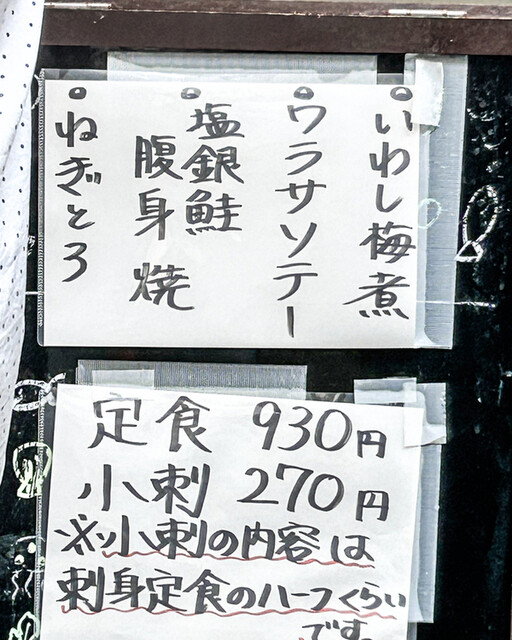 いわし梅煮
ウラサソテー
塩銀鮭
腹身焼
ねぎとろ
定食 930円
小刺 270円
※小刺の内容は
刺身定食のハーフくらい
です